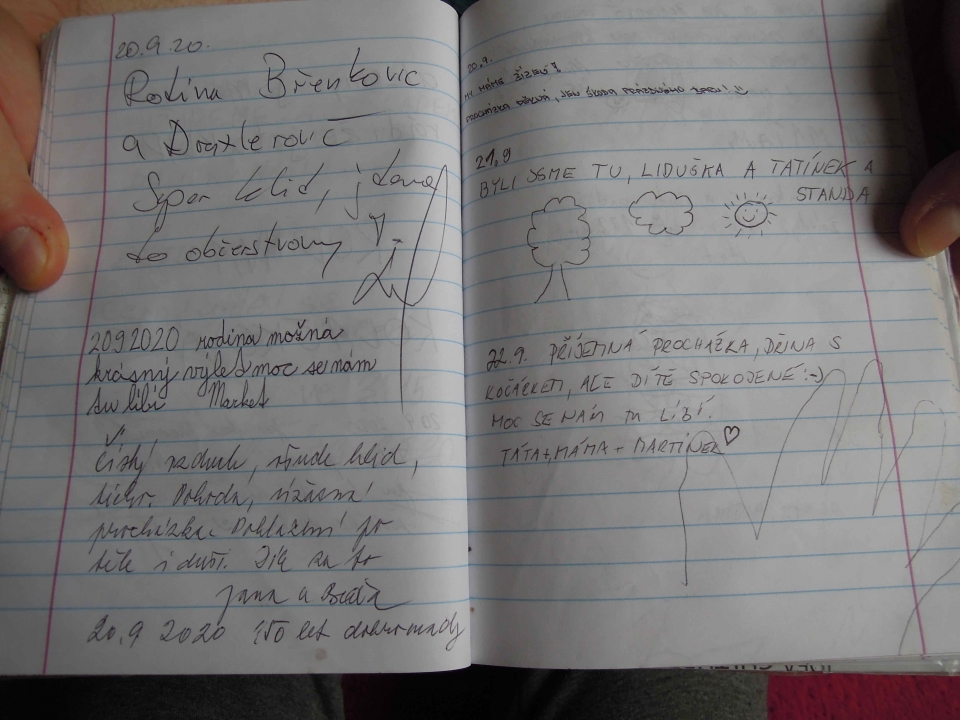 20.9.20.
Rodina Břenkovic
a Draxlerovic
Super klid, jdeme
do občerstvovny
20 9 2020 rodina možná
krásný výlet moc se nám
tu líbí Market
Čistý vzduch, všude klid,
ticho. Pohoda, úžasná
procházka. Pohlazení po
těle i duši. Díky za to
Jana a
20.9 2020 150 let dohromady
20.9.
MY MÁME ŽÍZEŇ!
PROCHÁZKA PĚKNÁ, JEN ŠKODA PRÁZDNÉHO
21.9
BYLI JSME TU, LIDUŠKA A TATÍNEK A
STANDA
22.9. PŘÍJEMNÁ PROCHÁZKA, DŘINA S
KOČÁRKEM, ALE DÍTĚ SPOKOJENÉ :-)
MOC SE NÁM TU LÍBÍ.
TÁTA + MÁMA + MARTÍNEK ♡